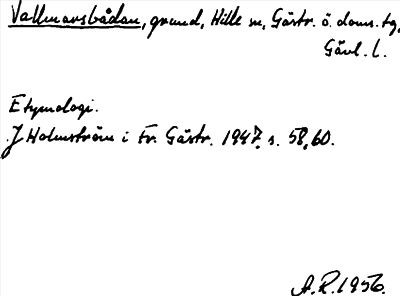 Vallmarsbådan, grund, Hille sn, Gästr. ö. doms. tg,
Gävl. l.
Etymologi.
J Holmström i Fr. Gästr. 1947, s. 58, 60.
A.R. 1956.